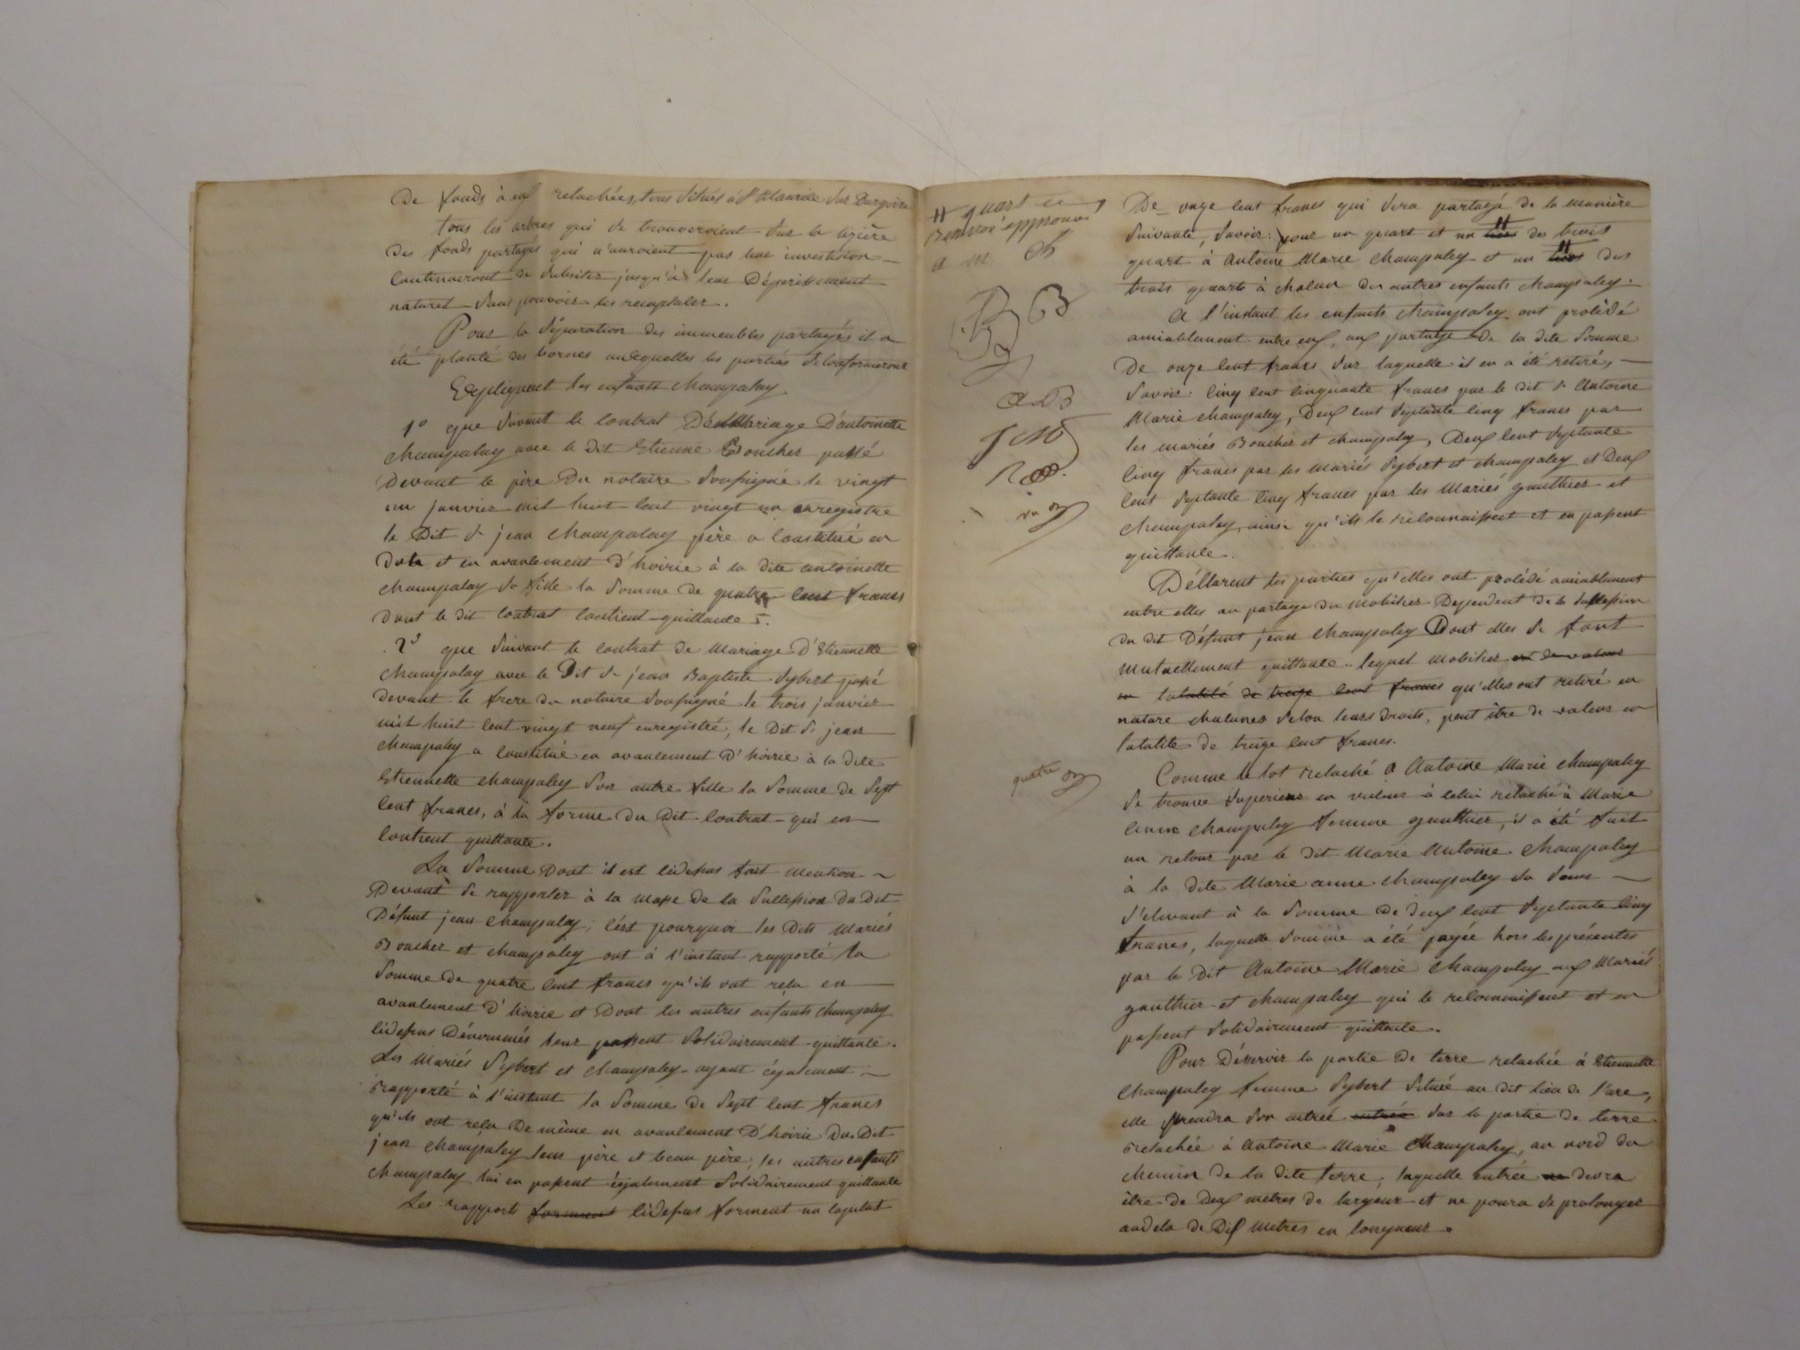 De fonds à eux relachées, tous situés à St Maurice sur Dargoire
tous les arbres qui se trouveroient sur la lizière
des fonds partagés qui n'auroient pas leur investison
continueront de subsister jusqu'à leur Dépérissement
naturel sans pouvoir les remplacer.
Pour la séparation des immeubles partagés il a
été planté des bornes auxquelles les parties se conformeront
Expliquent les enfants champaley
1° que suivant le contrat De Mariage D'antoinette
champaley avec le dit Etienne Boucher passé
devant le père Du notaire soussigné le vingt
un janvier mil huit cent vingt un enregistré
le Dit Sr jean champaley père a constitué en
Dot et en avancement d'hoirie à la dite antoinette
champaley sa fille la somme de quatre cent francs
dont le dit contrat contient quittance
2° que suivant le contrat de Mariage D'Etiennette
champaley avec le Dit Sr jean Baptiste Sybert passé
devant le frere du notaire soussigné le trois janvier
mil huit cent vingt neuf enregistré, le Dit Sr jean
champaley a constitué en avancement D'hoirie à la dite
Etiennette champaley son autre fille la somme de sept
cent francs, à la forme du Dit contrat qui en
contient quittance.
La somme Dont il est cidessus fait mention
Devant se rapporter à la masse de la succession du Dit
Défunt jean champaley; c'est pourquoi les Dits mariés
Boucher et champaley ont à l'instant rapporté la
somme de quatre cent francs qu'ils ont reçu en
avancement D'hoirie et Dont les autres enfants champaley
cidessus Dénommés leur passent solidairement quittance.
Les mariés Sybert et champaley ayant également
rapporté à l'instant la somme de sept cent francs
qu'ils ont reçu De même en avancement D'hoirie Du Dit
jean champaley leur père et beau père; les autres enfants
champaley lui en passent également solidairement quittance
Les rapport forment cidessus forment un capital
# quart et
renvoi approuvé
a m ch
B B
a B
quatre
De onze cent francs qui sera partagé de la manière
suivante, savoir: pour un quart et un tiers # des trois
quart à antoine Marie champaley et un tiers # des
trois quarts à chacun des autres enfants champaley.
A l'instant les enfants champaley ont procédé
amiablement entre eux, au partage De la dite somme
De onze cent francs sur laquelle il en a été retirés
savoir: cinq cent cinquante francs par le dit Sr Antoine
Marie champaley, Deux cent septante cinq francs par
les mariés Boucher et champaley, Deux cent septante
cinq francs par les mariés Sybert et champaley et Deux
cent septante cinq francs par les Mariés gauthier et
champaley, ainsi qu'ils le reconnaissent et en passent
quittance.
Déclarent les parties qu'elles ont procédé amiablement
entre elles au partage du mobilier Dépendent de la succession
du dit Défunt jean champaley Dont elles se font
mutuellement quittance. lequel mobilier est de valeur
en totalité de treize cent francs qu'elles ont retiré en
nature chacunes selon leurs droits, peut être de valeur en
totalité de treize cent francs.
Comme le lot relaché a Antoine Marie champaley
se trouve superieur en valeur à celui relaché à Marie
anne champaley femme gauthier, il a été fait
un retour par le dit Marie Antoine champaley
à la dite Marie anne champaley sa sœur
s'elevant à la somme de deux cent septante cinq
francs, laquelle somme a été payée hors les présentes
par le Dit Antoine Marie champaley aux Mariés
gauthier et champaley qui le reconnaissent et en
passent solidairement quittance.
Pour Déservir la partie de terre relachée à Etiennette
champaley femme Sybert située au dit lieu de l'are,
elle prendra son entrée entrée sur la partie de terre
relachée à Antoine Marie champaley, au nord du
chemin de la dite terre; laquelle entrée devra
être de Deux metres de largeur et ne poura se prolonger
audela de Dix metres en longueur.